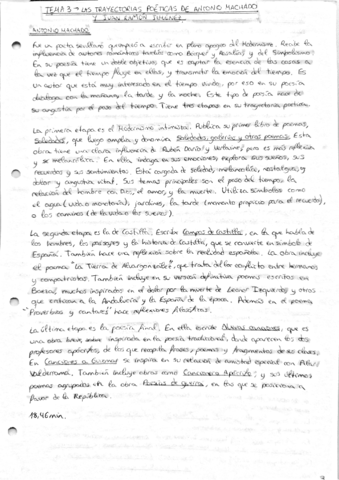 TEMA 3 → LAS TRAYECTORIAS POÉTICAS DE ANTONIO MACHADO
Y JUAN RAMÓN JIMÉNEZ
ANTONIO MACHADO
Fue un poeta sevillano que empezó a escribir en pleno apogeo del Modernismo. Recibe la
influencia de autores románticos tardíos como Bécquer y Rosalía y del Simbolismo.
En su poesía tiene un doble objetivo que es captar la esencia de las cosas a
la vez que el tiempo fluye en ellas, y transmitir la emoción del tiempo. Es
un autor que está muy interesado en el tiempo vivido, por eso en su poesía
la mañana, la tarde y la noche. Este tipo de poesía nace de
su angustia por el paso del tiempo. Tiene tres etapas en su trayectoria poética.
La primera etapa es el Modernismo intimista. Publica su primer libro de poemas,
Soledades, que luego amplía y denomina Soledades, galerías y otros poemas. Esta
obra tiene una clara influencia de Rubén Darío y Verlaine, pero es más reflexiva
y melancólica. En ella indaga en sus emociones, explora sus sueños, sus
recuerdos y sus sentimientos. Está cargada de soledad, melancolía, nostalgia, y
dolor y angustia vital. Sus temas principales son el paso del tiempo, la
relación del hombre con Dios, el amor, y la muerte. Utiliza símbolos como
el agua (vida o monotonía), jardines, la tarde (momento propicio para el recuerdo),
o los caminos (de los sueños).
La segunda etapa es la de Castilla. Escribe Campos de Castilla, en la que habla de
los hombres, los paisajes y la historia de Castilla, que se convierte en símbolo de
España. También hace una reflexión sobre la realidad española. La obra incluye
el poema "La Tierra de Alvargonzález", que trata del conflicto entre hermanos
y compatriotas. También incluye en su versión definitiva poemas escritos en
Baeza, muchos inspirados en el dolor por la muerte de Leonor Izquierdo, y otros
que evocan a la Andalucía y la España de la época. Además en el poema
"Proverbios y cantares" hace reflexiones filosóficas.
La última etapa es la poesía final. En ella escribe Nuevas canciones, que es
una obra breve inspirada en la poesía tradicional, donde aparecen los dos
profesores apócrifos, de los que recopila frases, poemas y fragmentos de sus clases.
En Canciones a Guiomar se inspira en su relación de amistad especial con Pilar
Valderrama. También incluye obras como Cancionero Apócrifo, y sus últimos
poemas agrupados en la obra Poesías de guerra, en las que se posiciona a
favor de la República.
18,46 min.